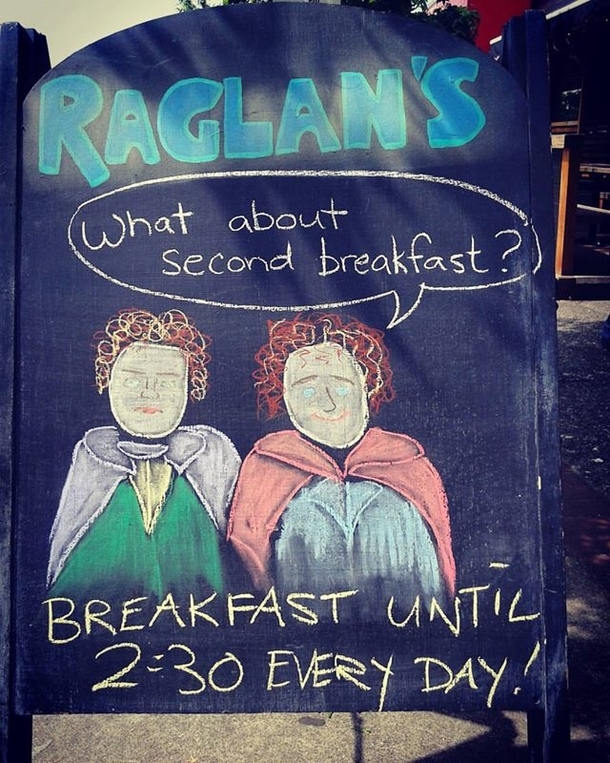 RAGLAN'S
What about
second breakfast?
BREAKFAST UNTIL
2:30 EVERY DAY!